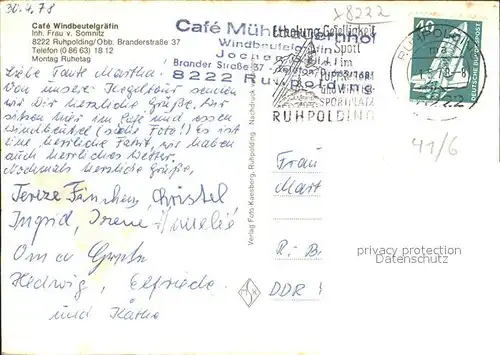 30.4.78
8222
Café Windbeutelgräfin
Inh. Frau v. Somnitz
8222 Ruhpolding/Obb. Branderstraße 37
Telefon (0 86 63) 18 12
Montag Ruhetag
Café Mühlbauernhof
Windbeutelgräfin
Brander Straße 37
8222 Ruhpolding
Erholung Geselligkeit
Sport
im
RUHPOLDING
40
DEUTSCHE BUNDESPOST
41/6
Liebe Tante Martha!
Von unserer Kegeltour senden
wir Dir herzliche Grüße. Wir
sitzen hier im Café und essen
Windbeutel (siehe Foto!) Es ist
eine herrliche Fahrt, wir haben
auch herrliches Wetter.
Nochmals herzliche Grüße,
Christel
Ingrid, Irene Amelie
Oma
Hedwig, Elfriede
und Käthe
Verlag Foto Kaesberg, Ruhpolding · Nachdruck
Frau
Mart
R.-B
DDR
PRIVATSPHÄRE
Datenschutz